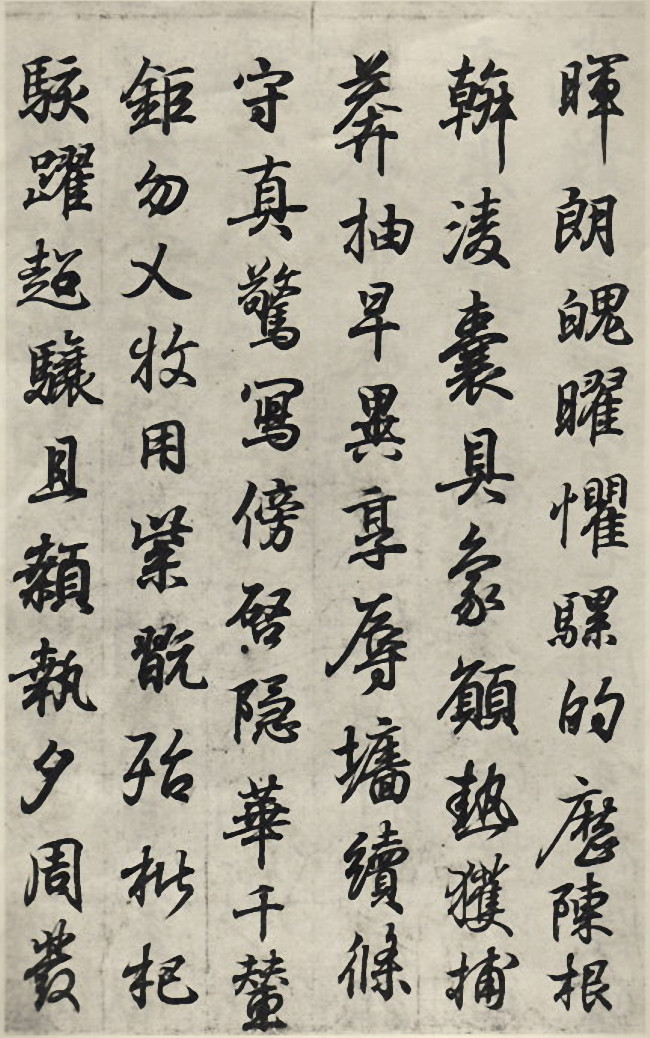 暉朗魄曜懼騾的歷陳根
斡凌囊具象顧熱獲捕
莽抽早異享辱墻續條
守真驚寫傍啓隐華千
鉅勿乂牧用紫翫殆枇杷
駭躍超驤且顙執夕周